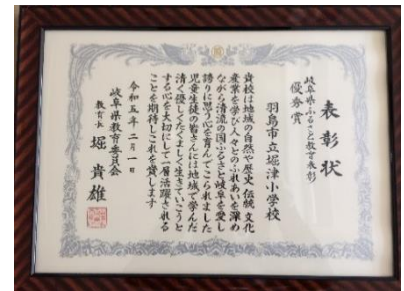 表彰状
岐阜県ふるさと教育表彰
優秀賞
羽島市立堀津小学校
貴校は地域の自然や歴史 伝統 文化
産業を学び人々とのふれあいを深め
ながら清流の国ふるさと岐阜を愛し
誇りに思う心を育んでこられました
児童生徒の皆さんには地域で学んだ
清く優しくたくましく生きていこうと
する心を大切にして一層活躍される
ことを期待しこれを賞します
令和五年二月一日
岐阜県教育委員会
教育長 堀 貴雄